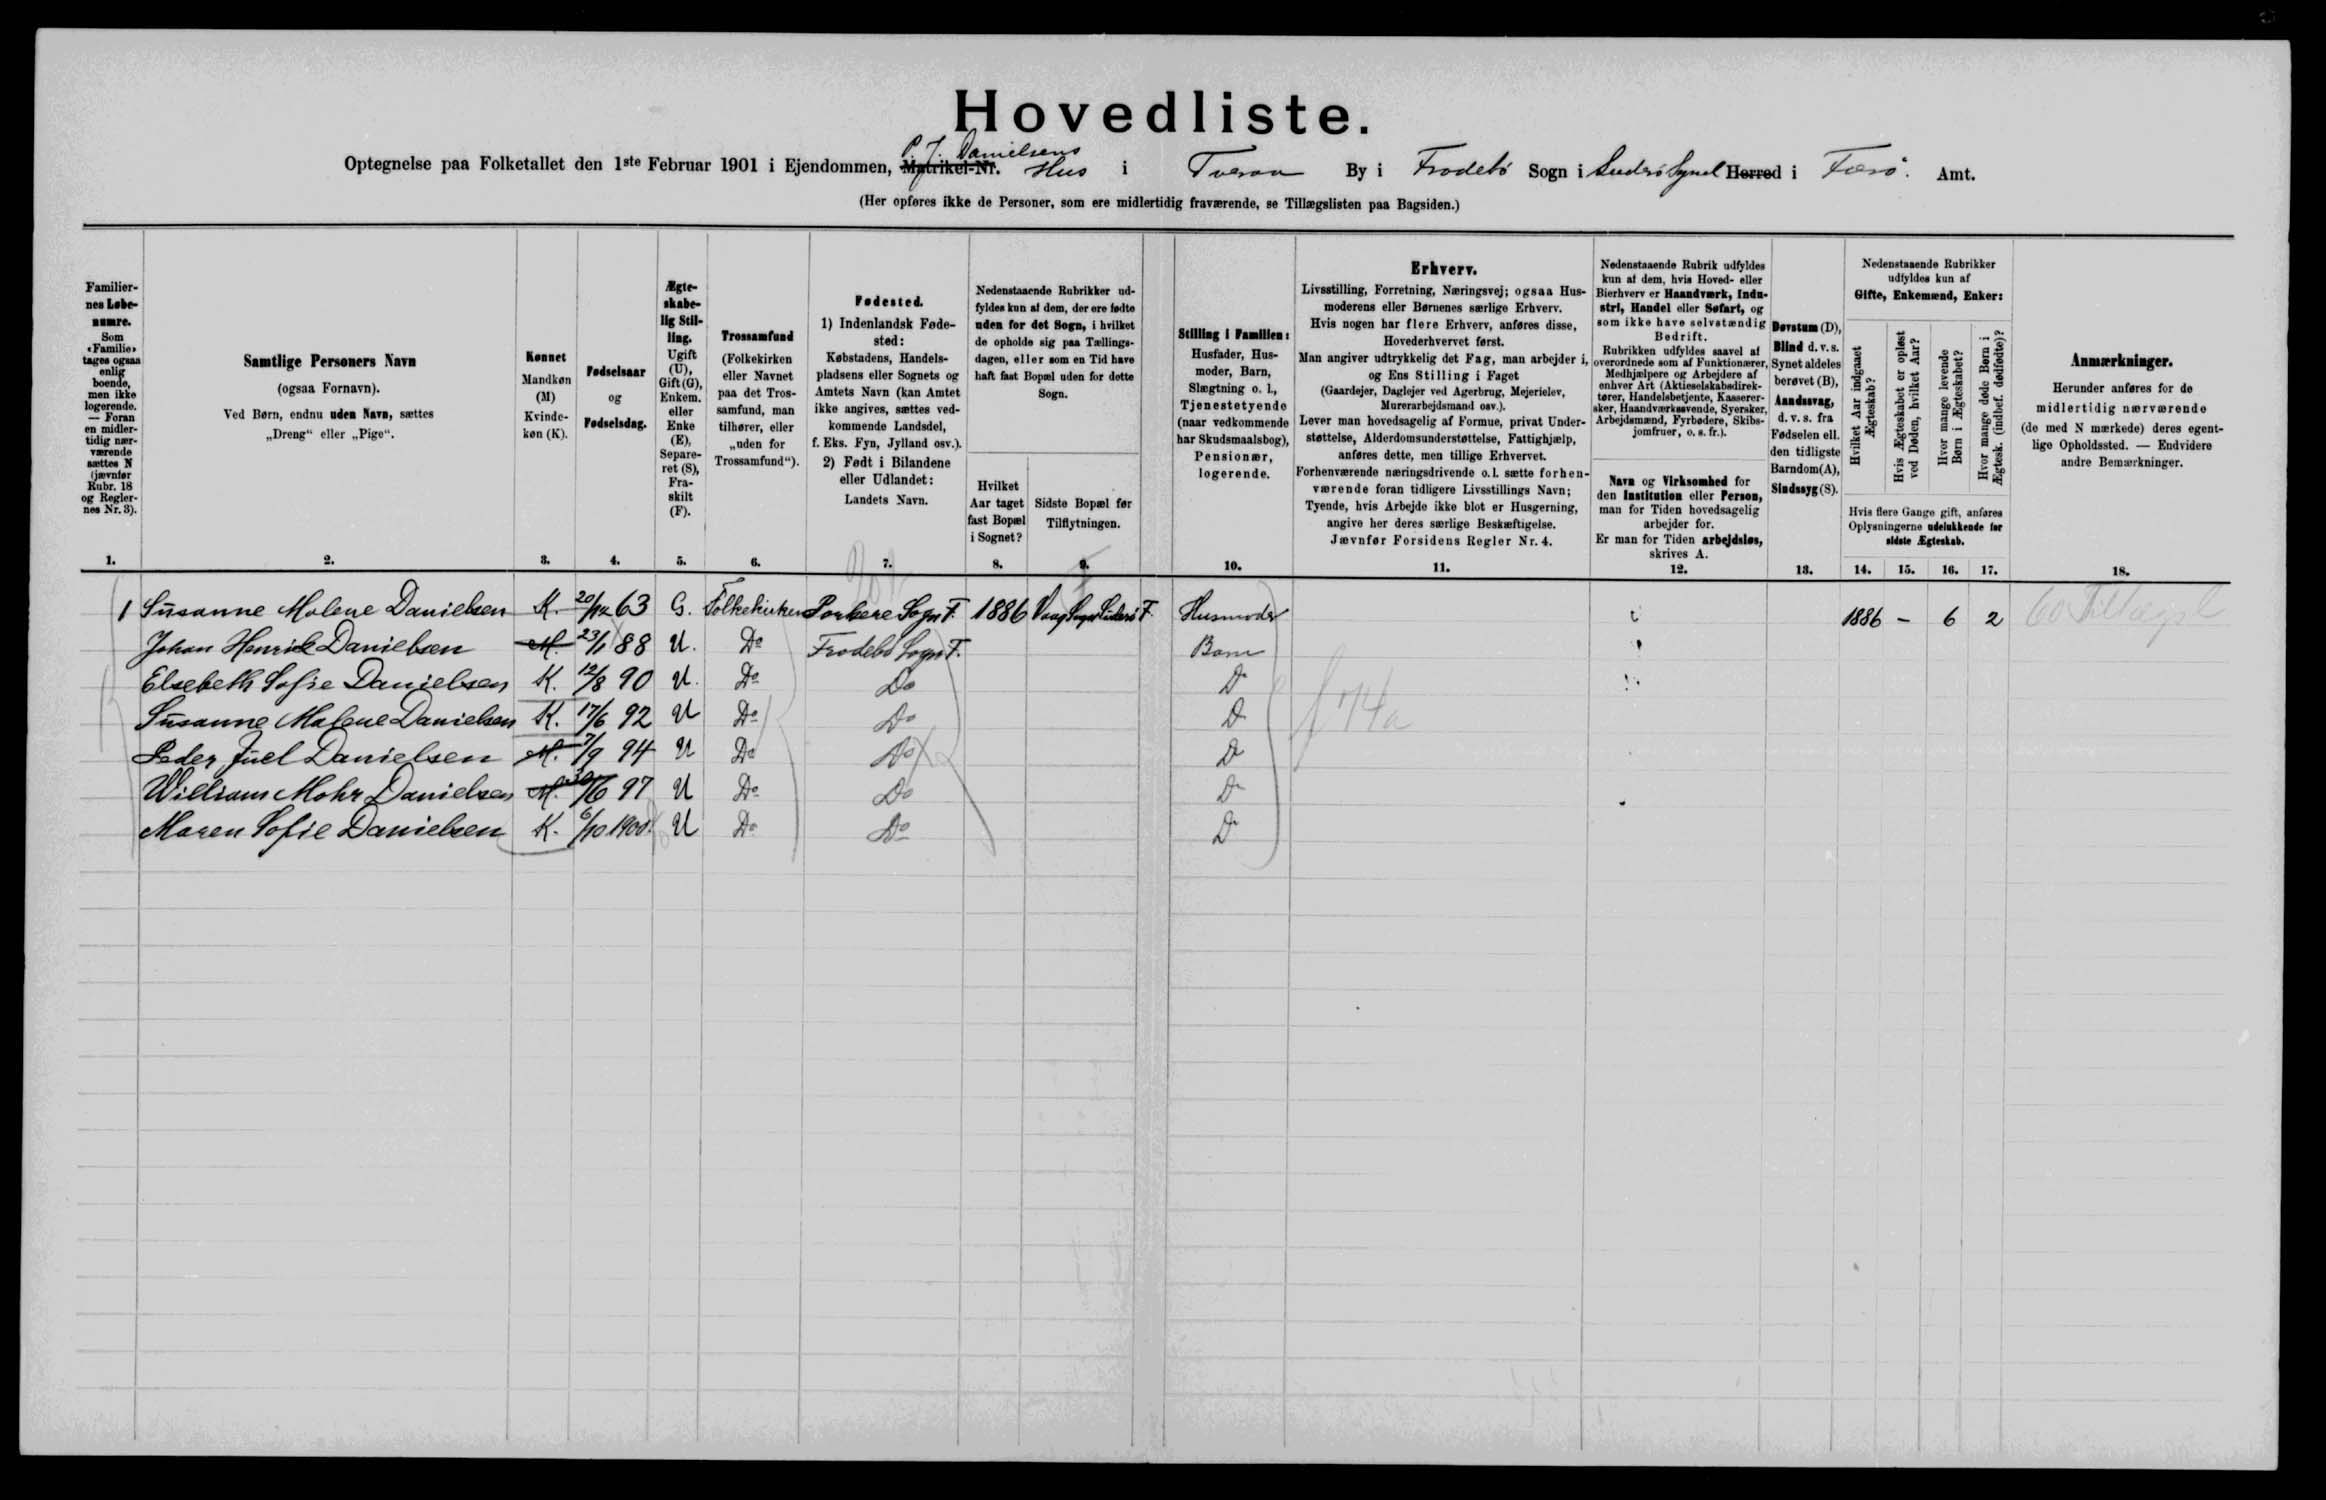 Hovedliste.
P. J. Danielsens
Optegnelse paa Folketallet den 1ste Februar 1901 i Ejendommen, Matrikel-Nr. Hus i Tveraa By i Frodebö Sogn i Suderö Sysel Herred i Færö. Amt.
(Her opføres ikke de Personer, som ere midlertidig fraværende, se Tillægslisten paa Bagsiden.)
Familier-
nes Løbe-
numre.
Som
«Familie»
tages ogsaa
enlig
boende,
men ikke
logerende.
— Foran
en midler-
tidig nær-
værende
sættes N
(jævnfør
Rubr. 18
og Regler-
nes Nr. 3).
1.
Samtlige Personers Navn
(ogsaa Fornavn).
Ved Børn, endnu uden Navn, sættes
„Dreng“ eller „Pige“.
2.
Kønnet
Mandkøn
(M)
Kvinde-
køn (K).
3.
Fødselsaar
og
Fødselsdag.
4.
Ægte-
skabe-
lig Stil-
ling.
Ugift
(U),
Gift (G),
Enkem.
eller
Enke
(E),
Separe-
ret (S),
Fra-
skilt
(F).
5.
Trossamfund
(Folkekirken
eller Navnet
paa det Tros-
samfund, man
tilhører, eller
„uden for
Trossamfund“).
6.
Fødested.
1) Indenlandsk Føde-
sted:
Købstadens, Handels-
pladsens eller Sognets og
Amtets Navn (kan Amtet
ikke angives, sættes ved-
kommende Landsdel,
f. Eks. Fyn, Jylland osv.).
2) Født i Bilandene
eller Udlandet:
Landets Navn.
7.
Nedenstaaende Rubrikker ud-
fyldes kun af dem, der ere fødte
uden for det Sogn, i hvilket
de opholde sig paa Tællings-
dagen, eller som en Tid have
haft fast Bopæl uden for dette
Sogn.
Hvilket
Aar taget
fast Bopæl
i Sognet?
8.
Sidste Bopæl før
Tilflytningen.
9.
Stilling i Familien:
Husfader, Hus-
moder, Barn,
Slægtning o. l.,
Tjenestetyende
(naar vedkommende
har Skudsmaalsbog),
Pensionær,
logerende.
10.
Erhverv.
Livsstilling, Forretning, Næringsvej; ogsaa Hus-
moderens eller Børnenes særlige Erhverv.
Hvis nogen har flere Erhverv, anføres disse,
Hovederhvervet først.
Man angiver udtrykkelig det Fag, man arbejder i,
og Ens Stilling i Faget
(Gaardejer, Daglejer ved Agerbrug, Mejerielev,
Murerarbejdsmand osv.).
Lever man hovedsagelig af Formue, privat Under-
støttelse, Alderdomsunderstøttelse, Fattighjælp,
anføres dette, men tillige Erhvervet.
Forhenværende næringsdrivende o. l. sætte forhen-
værende foran tidligere Livsstillings Navn;
Tyende, hvis Arbejde ikke blot er Husgerning,
angive her deres særlige Beskæftigelse.
Jævnfør Forsidens Regler Nr. 4.
11.
Nedenstaaende Rubrik udfyldes
kun af dem, hvis Hoved- eller
Bierhverv er Haandværk, Indu-
stri, Handel eller Søfart, og
som ikke have selvstændig
Bedrift.
Rubrikken udfyldes saavel af
overordnede som af Funktionærer,
Medhjælpere og Arbejdere af
enhver Art (Aktieselskabsdirek-
tører, Handelsbetjente, Kasserer-
sker, Haandværkssvende, Syersker,
Arbejdsmænd, Fyrbødere, Skibs-
jomfruer, o. s. fr.).
Navn og Virksomhed for
den Institution eller Person,
man for Tiden hovedsagelig
arbejder for.
Er man for Tiden arbejdsløs,
skrives A.
12.
Døvstum (D),
Blind d. v. s.
Synet aldeles
berøvet (B),
Aandssvag,
d. v. s. fra
Fødselen ell.
den tidligste
Barndom (A),
Sindssyg (S).
13.
Nedenstaaende Rubrikker
udfyldes kun af
Gifte, Enkemænd, Enker:
Hvilket Aar indgaaet
Ægteskab?
Hvis Ægteskabet er opløst
ved Døden, hvilket Aar?
Hvor mange levende
Børn i Ægteskabet?
Hvor mange døde Børn i
Ægtesk. (indbef. dødfødte)?
Hvis flere Gange gift, anføres
Oplysningerne udelukkende for
sidste Ægteskab.
14. 15. 16. 17.
Anmærkninger.
Herunder anføres for de
midlertidig nærværende
(de med N mærkede) deres egent-
lige Opholdssted. — Endvidere
andre Bemærkninger.
18.
1 Susanne Malene Danielsen K. 20/12 63 G. Folkekirken Porkere Sogn F. 1886 Vaag Sogn Suderö F. Husmoder 1886 - 6 2
Johan Henrik Danielsen M. 23/1 88 U. Do Frodebö Sogn F. Barn
Elsebeth Sofie Danielsen K. 12/8 90 U. Do Do D
Susanne Malene Danielsen K. 17/6 92 U Do Do D
Peder Juel Danielsen M. 7/9 94 U Do Do D
William Mohr Danielsen M. 30/6 97 U Do Do D
Maren Sofie Danielsen K. 6/10 1900. U Do Do D